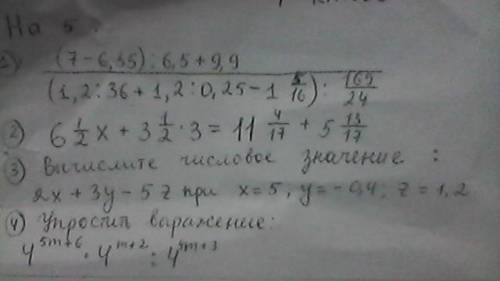 На 5.
1) (7-6,35):6,5+9,9
(1,2:36+1,2:0,25-1 5/16):169/24
2) 6 1/2 x + 3 1/2 · 3 = 11 4/17 + 5 13/17
3) Вычислите числовое значение:
2x + 3y - 5z при x=5; y=-0,4; z=1,2
4) Упростить выражение:
4^5m+6 · 4^m+2 : 4^4m+3